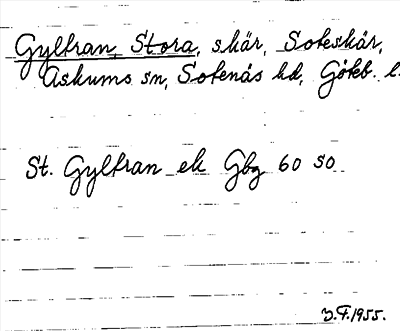 Gyltran, Stora, skär, Soteskär,
Askums sn, Sotenäs hd, Göteb. l.
St. Gyltran ek Gbg 60 so
V.F. 1955.